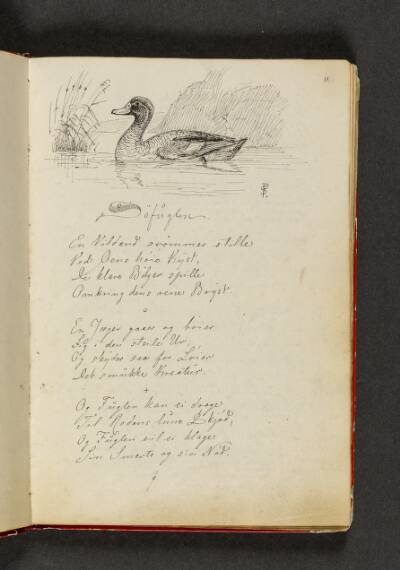 Söfuglen.
En Vildand svömmer stille
Ved Öens höie Kyst,
De klare Bölger spille
Omkring dens rene Bryst
En Jæger gaaer og böier
Sig i den steile Ur,
Og skyder saa for Löier
Det smukke Kreatur.
Og Fuglen kan ei drage
Til Redens lune Skjöd,
Og Fuglen vil ei klage
Sin Smerte og sin Nöd.